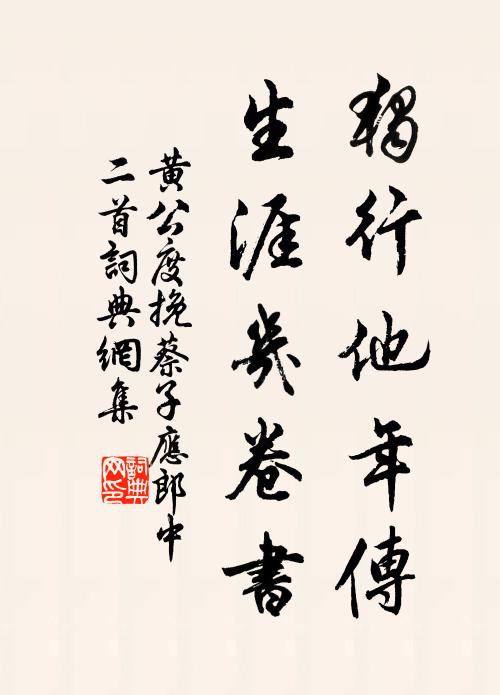 獨行他年傳
生涯幾卷書
黃公度挽蔡子應郎中
二首詞典網集
詞典網印